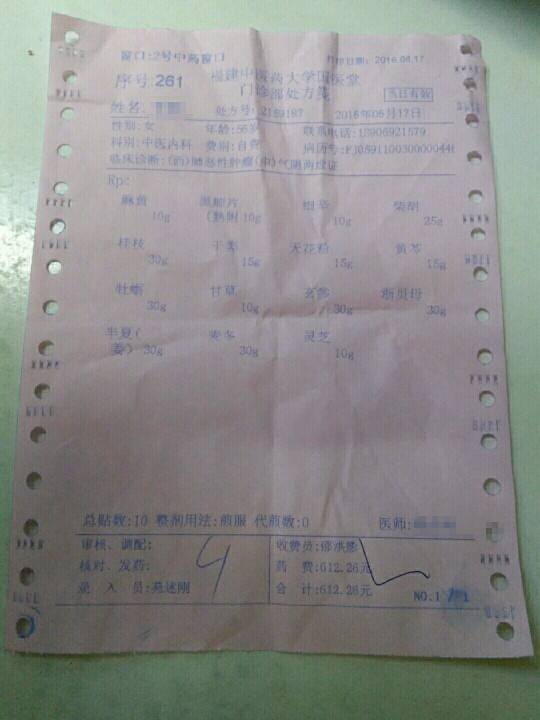 窗口:2号中药窗口 打印日期: 2016.06.17
序号:261 福建中医药大学国医堂
门诊部处方笺 当日有效
姓名: 处方号: 2159187 2016年06月17日
性别:女 年龄:56岁 联系电话:13906921579
科别:中医内科 费别:自费 病历号:FJ05911003000044
临床诊断:(西)肺恶性肿瘤(中)气阴两虚证
Rp:
麻黄 黑顺片 细辛 柴胡
10g (熟附 10g 10g 25g
桂枝 干姜 天花粉 黄芩
30g 15g 15g 15g
牡蛎 甘草 玄参 浙贝母
30g 10g 30g 30g
半夏( 麦冬 灵芝
姜) 30g 30g 10g
总贴数:10 整剂用法:煎服 代煎数:0 医师:
审核、调配: 收费员:
核对、发药: 药 费:612.26元
录 入 员: 合 计:612.26元 NO.1 / 1